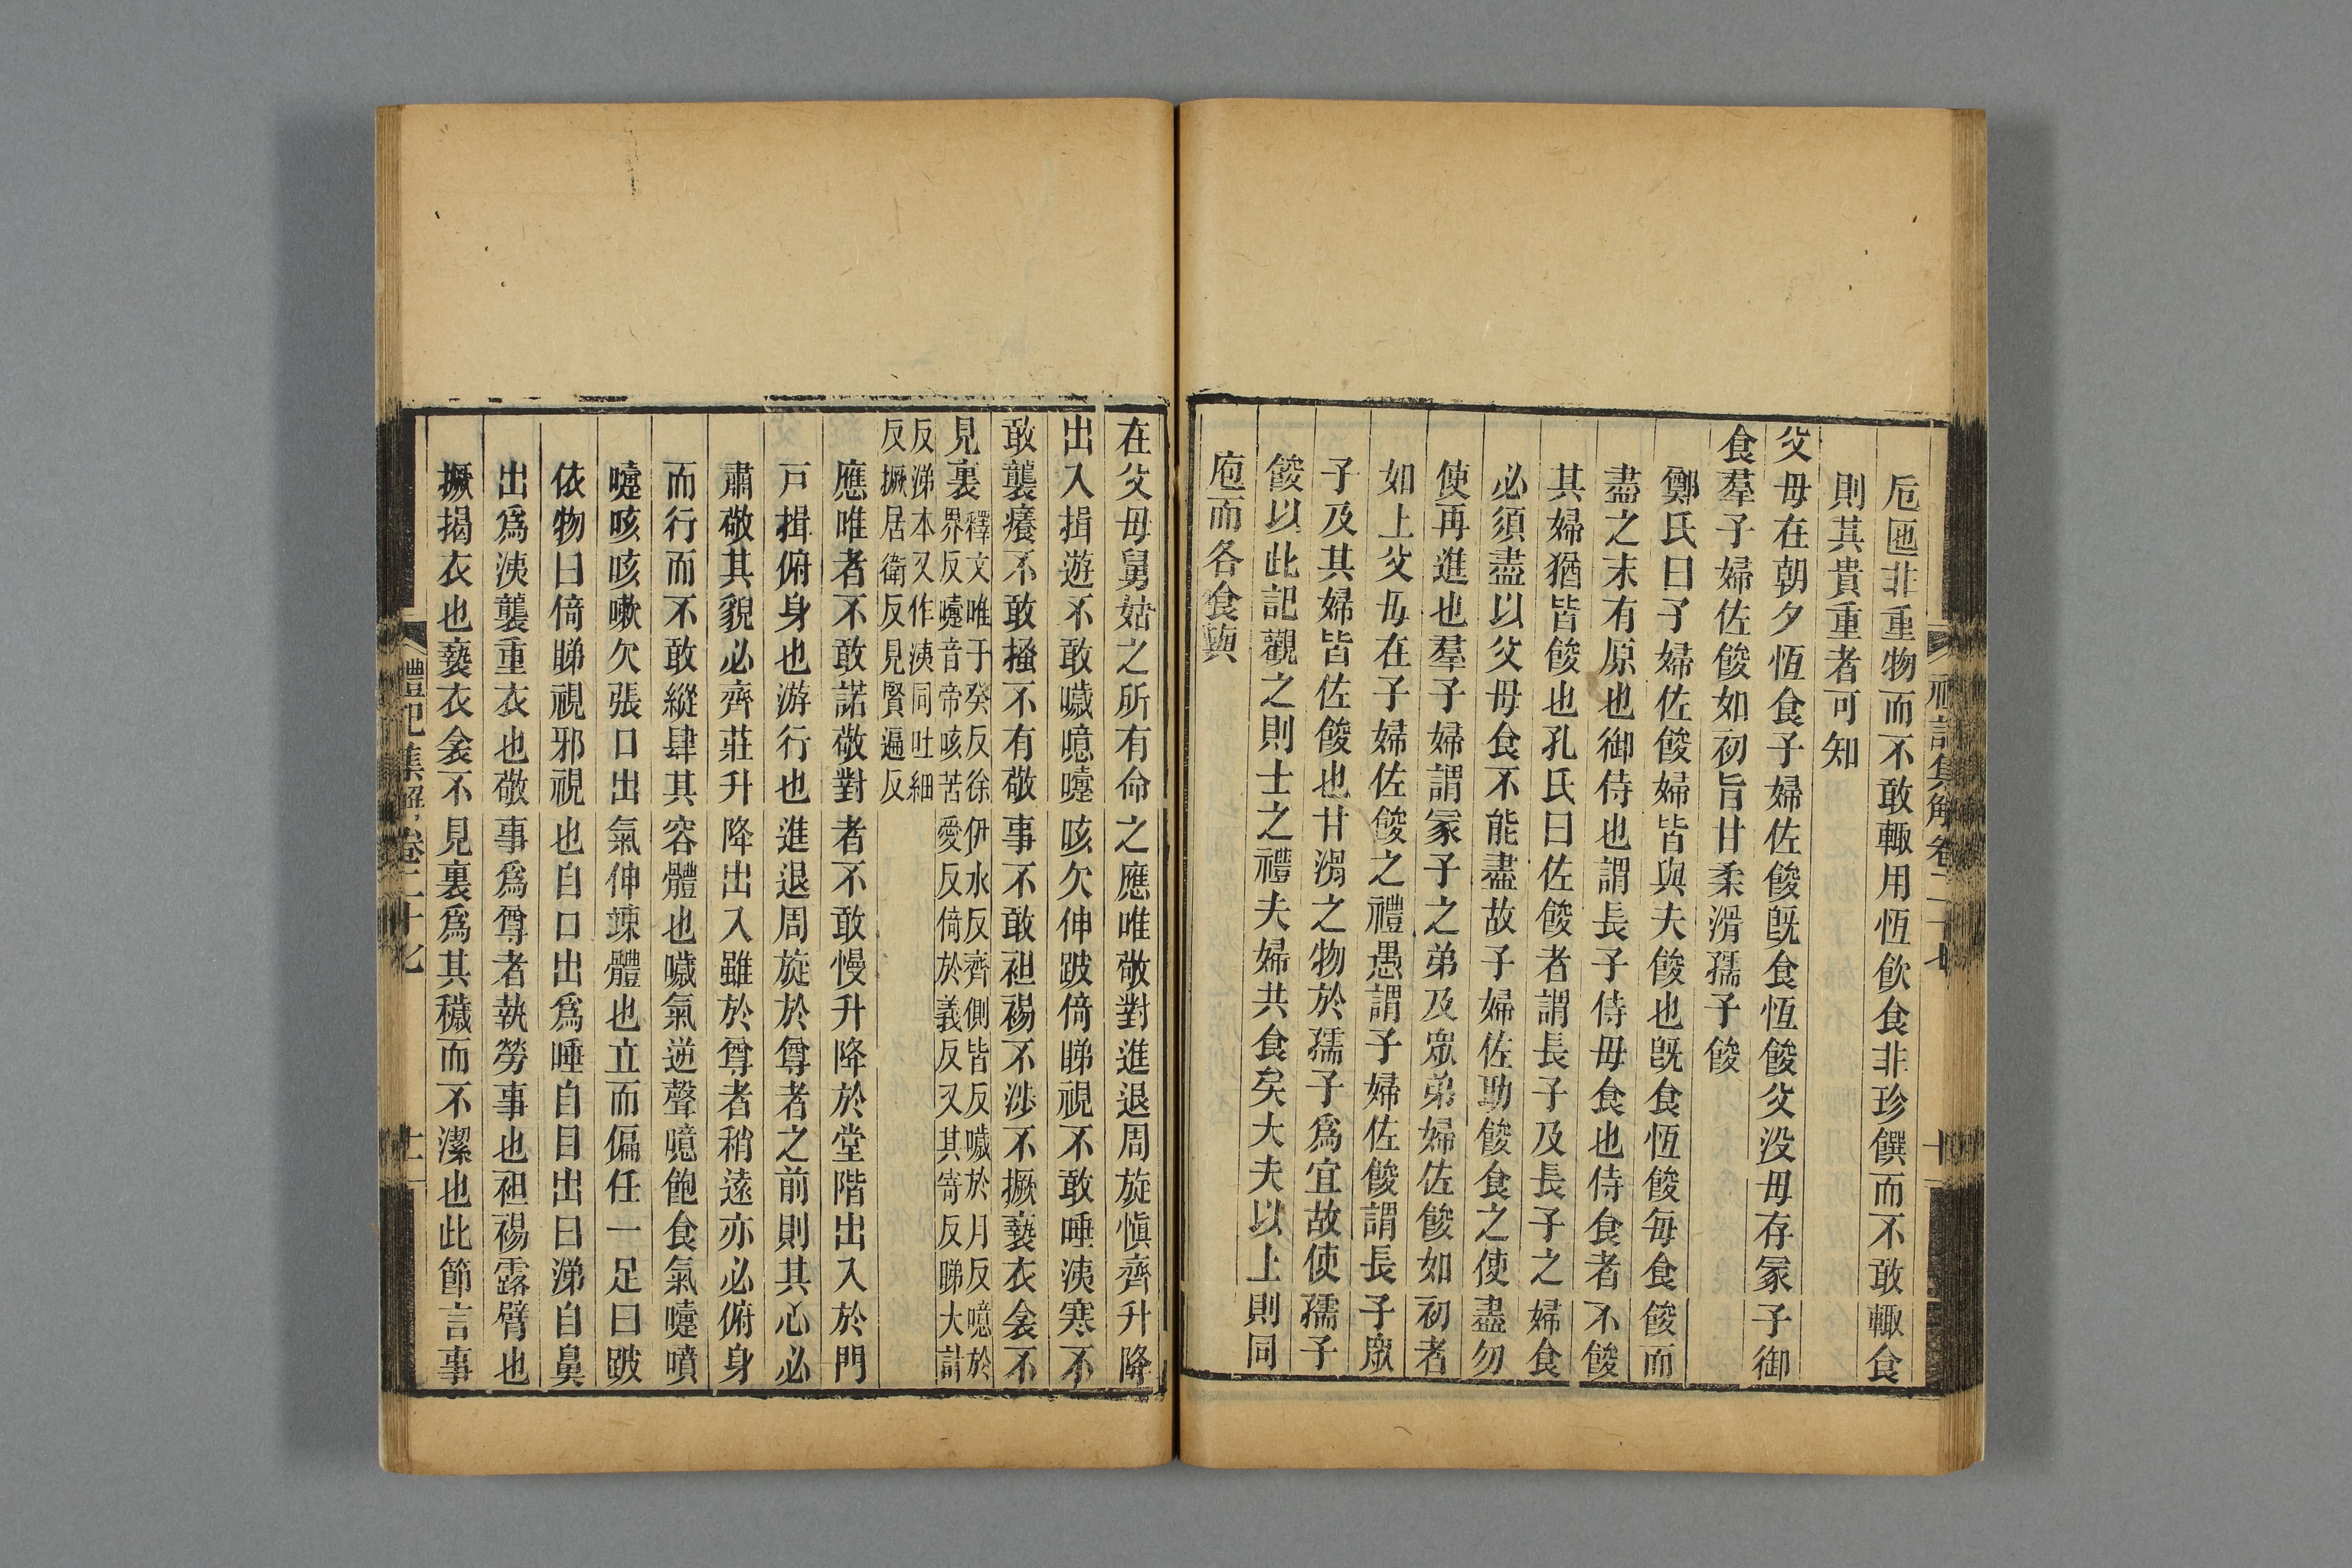 卮匜非重物而不敢輙用恆飲食非珍饌而不敢輙食
則其貴重者可知
父母在朝夕恆食子婦佐餕旣食恆餕父没母存冢子御
食羣子婦佐餕如初旨甘柔滑孺子餕
鄭氏曰子婦佐餕婦皆與夫餕也旣食恆餕每食餕而
盡之末有原也御侍也謂長子侍母食也侍食者不餕
其婦猶皆餕也孔氏曰佐餕者謂長子及長子之婦食
必須盡以父母食不能盡故子婦佐助餕食之使盡勿
使再進也羣子婦謂冢子之弟及眾弟婦佐餕如初者
如上父母在子婦佐餕之禮愚謂子婦佐餕謂長子眾
子及其婦皆佐餕也甘滑之物於孺子爲宜故使孺子
餕以此記觀之則士之禮夫婦共食矣大夫以上則同
庖而各食與
在父母舅姑之所有命之應唯敬對進退周旋愼齊升降
出入揖遊不敢噦噫嚏咳欠伸跛倚睇視不敢唾洟寒不
敢襲癢不敢搔不有敬事不敢袒裼不涉不撅褻衣衾不
見裏釋文唯于癸反徐伊水反齊側皆反噦於月反噫於
界反嚏音帝咳苦愛反倚於義反又其寄反睇大計
反涕本又作洟同吐細
反撅居衛反見賢遍反
應唯者不敢諾敬對者不敢慢升降於堂階出入於門
戸揖俯身也游行也進退周旋於尊者之前則其心必
肅敬其貌必齊莊升降出入雖於尊者稍遠亦必俯身
而行而不敢縱肆其容體也噦氣逆聲噫飽食氣嚏噴
嚏咳咳嗽欠張口出氣伸竦體也立而偏任一足曰跛
依物曰倚睇視邪視也自口出爲唾自目出曰涕自鼻
出爲洟襲重衣也敬事爲尊者執勞事也袒裼露臂也
撅揭衣也褻衣衾不見裏爲其穢而不潔也此節言事
禮記集解卷二十七